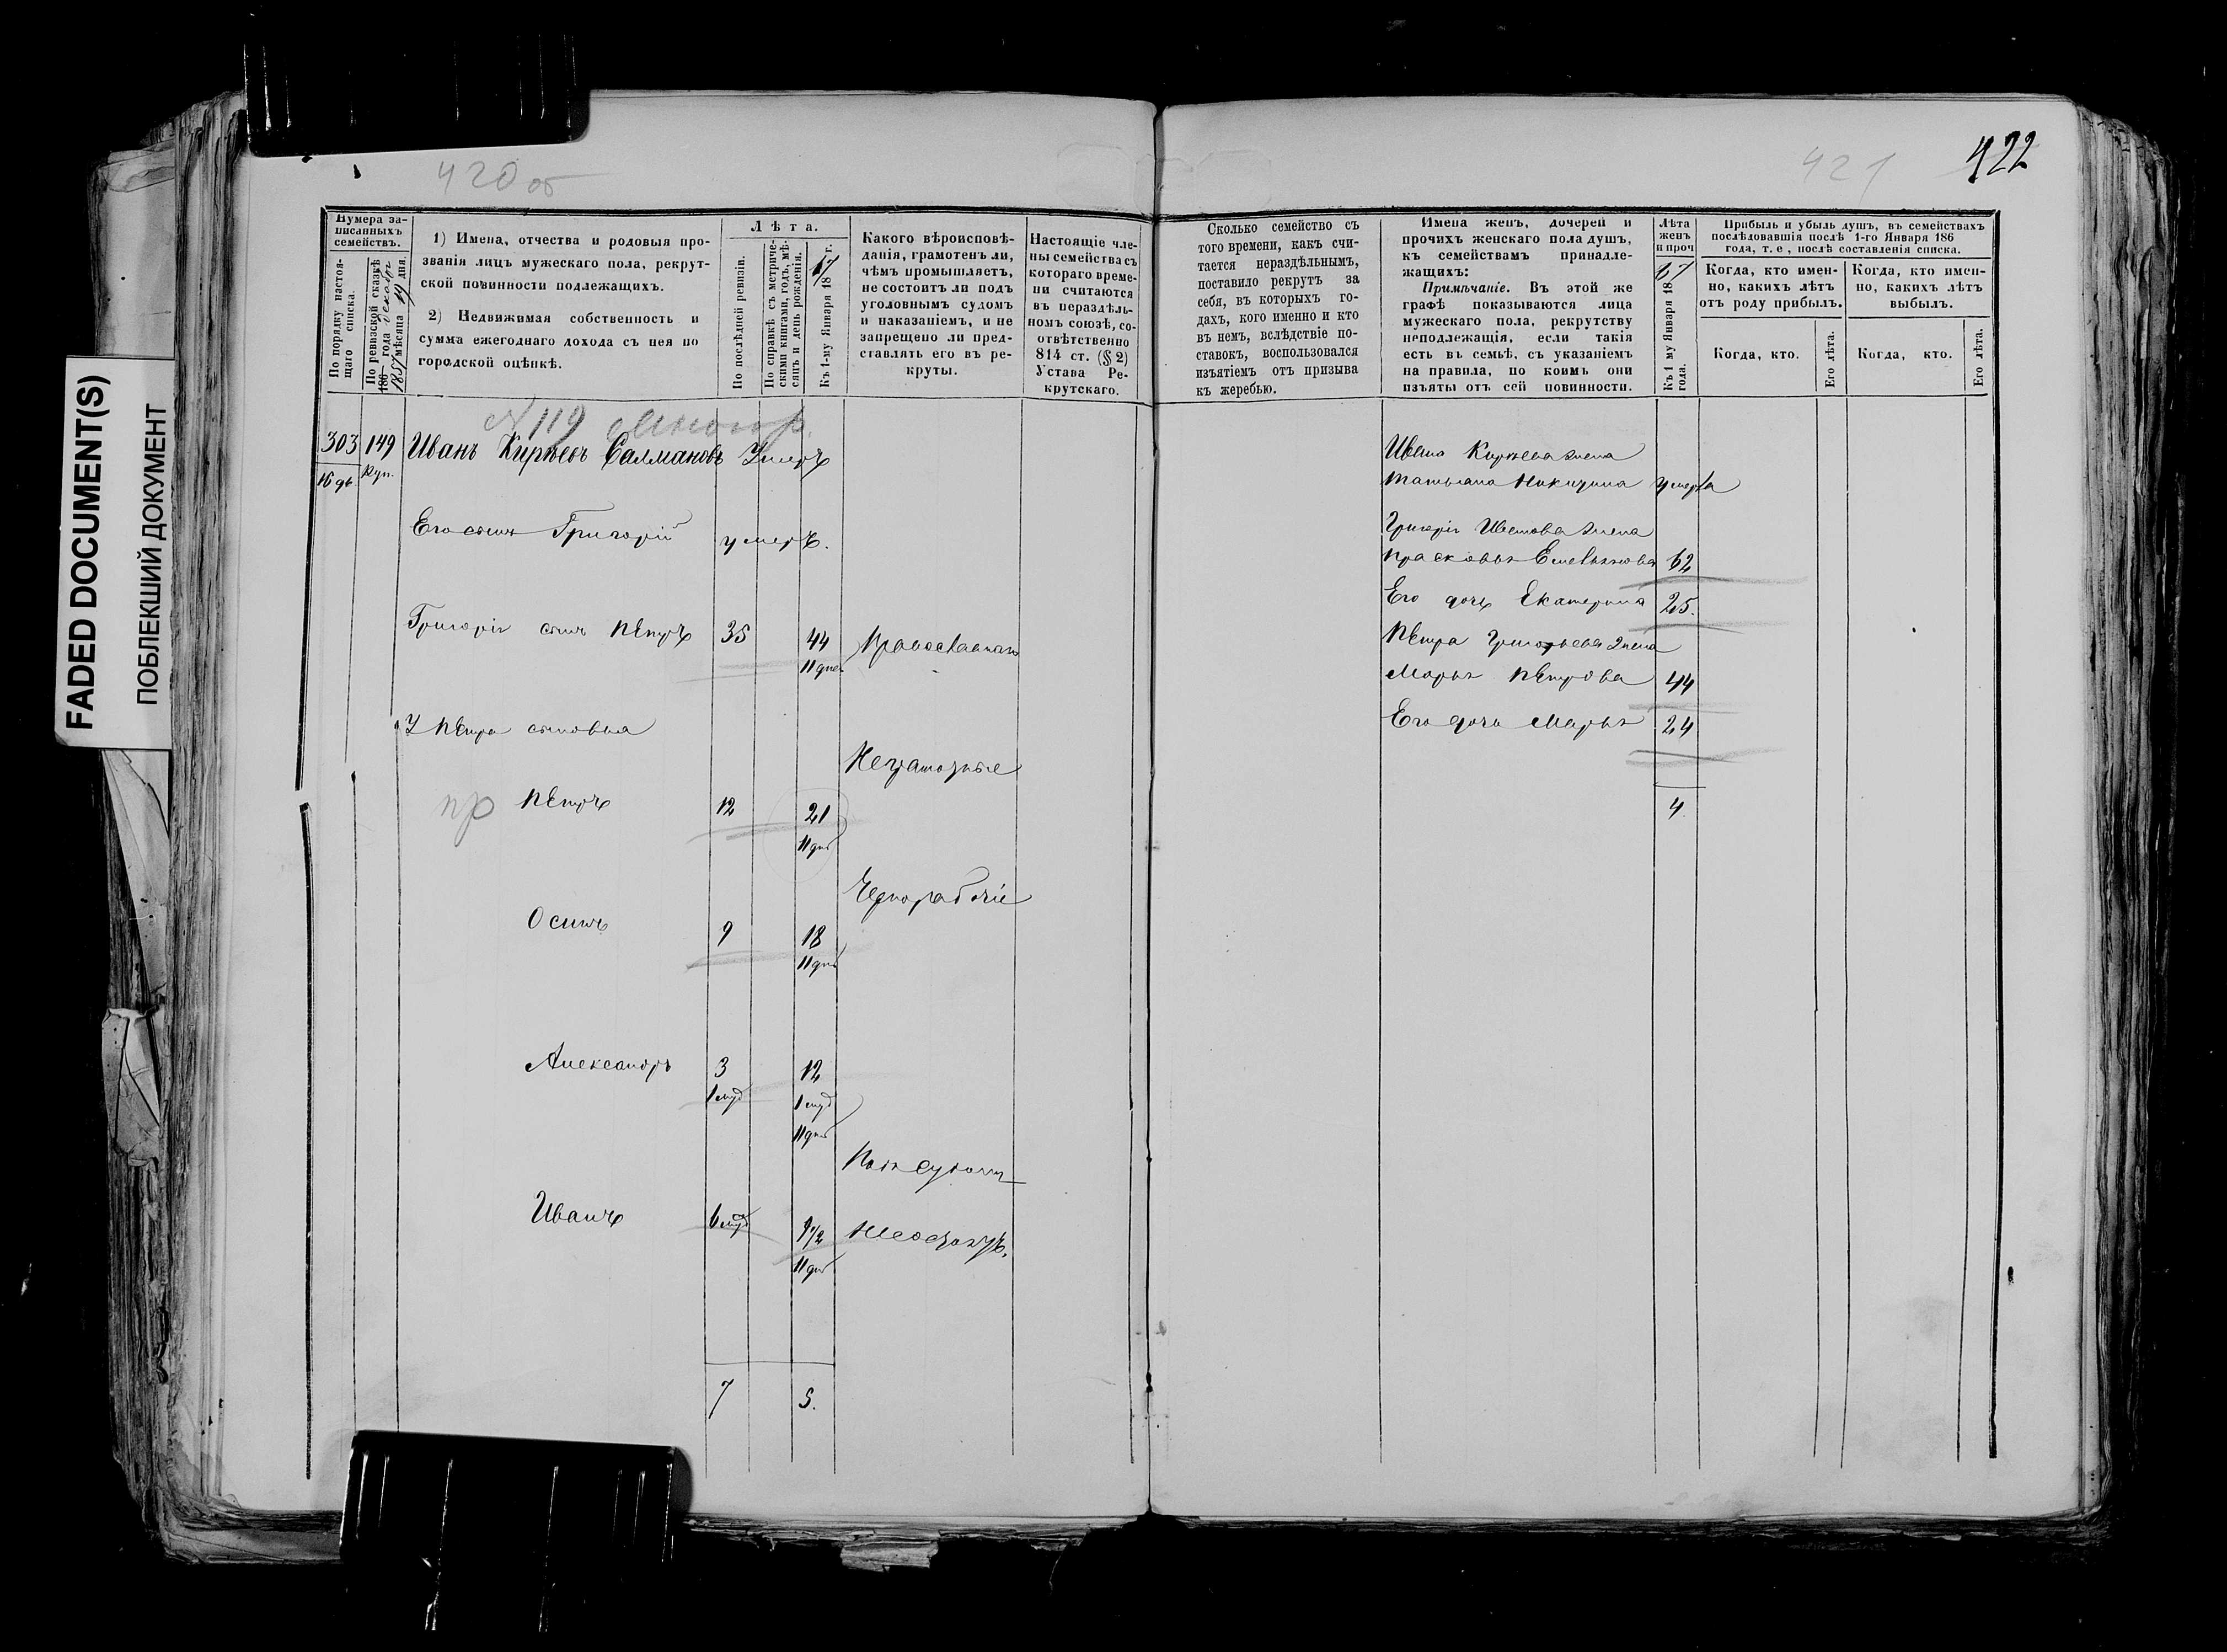 FADED DOCUMENT(S)
ПОБЛЕКШИЙ ДОКУМЕНТ
420 об
421
422
Нумера за-
писанныхъ
семействъ.
По порядку настоя-
щаго списка.
По ревизской сказкѣ
186 года
1857 мѣсяца 19 дня.
1) Имена, отчества и родовыя про-
званія лицъ мужескаго пола, рекрут-
ской повинности подлежащихъ.
2) Недвижимая собственность и
сумма ежегоднаго дохода съ нея по
городской оцѣнкѣ.
Лѣта.
По послѣдней ревизіи.
По справкѣ съ метриче-
скими книгами, годъ, мѣ-
сяцъ и день рожденія.
Къ 1-му Января 1867 г.
Какого вѣроисповѣ-
данія, грамотенъ ли,
чѣмъ промышляетъ,
не состоитъ ли подъ
уголовнымъ судомъ
и наказаніемъ, и не
запрещено ли пред-
ставлять его въ ре-
круты.
Настоящіе чле-
ны семейства съ
котораго време-
ни считаются
въ нераздѣль-
номъ союзѣ, со-
отвѣтственно
814 ст. (§ 2)
Устава Ре-
крутскаго.
Сколько семейство съ
того времени, какъ счи-
тается нераздѣльнымъ,
поставило рекрутъ за
себя, въ которыхъ го-
дахъ, кого именно и кто
въ немъ, вслѣдствіе по-
ставокъ, воспользовался
изъятіемъ отъ призыва
къ жеребью.
Имена женъ, дочерей и
прочихъ женскаго пола душъ,
къ семействамъ принадле-
жащихъ:
Примѣчаніе. Въ этой же
графѣ показываются лица
мужескаго пола, рекрутству
неподлежащія, если такія
есть въ семьѣ, съ указаніемъ
на правила, по коимъ они
изъяты отъ сей повинности.
Лѣта
женъ
и проч
Къ 1 му Января 1867
года.
Прибыль и убыль душъ, въ семействахъ
послѣдовавшія послѣ 1-го Января 186
года, т. е., послѣ составленія списка.
Когда, кто имен-
но, какихъ лѣтъ
отъ роду прибылъ.
Когда, кто имен-
но, какихъ лѣтъ
выбылъ.
Когда, кто.
Его лѣта.
Когда, кто.
Его лѣта.
N 119
303 149 Иванъ Кирѣевъ Салмановъ Умеръ
Его сынъ Григорій умеръ.
Григорія сынъ Петръ 35 44 Православнаго
11 дней
У Петра сыновья
Неграмотные
пр Петръ 12 21
11 дней
Чернорабочіе
Осипъ 9 18
11 дней
Александръ 3 12
11 дней
Иванъ 9 1/2
11 дней
7 5.
Ивана Кирѣева жена
Татьяна Никитина умерла
Григорія Иванова жена
Прасковья Емельянова 62
Его дочь Екатерина 25.
Петра Григорьева жена
Марья Петрова 44
Его дочь Марья 24
4.